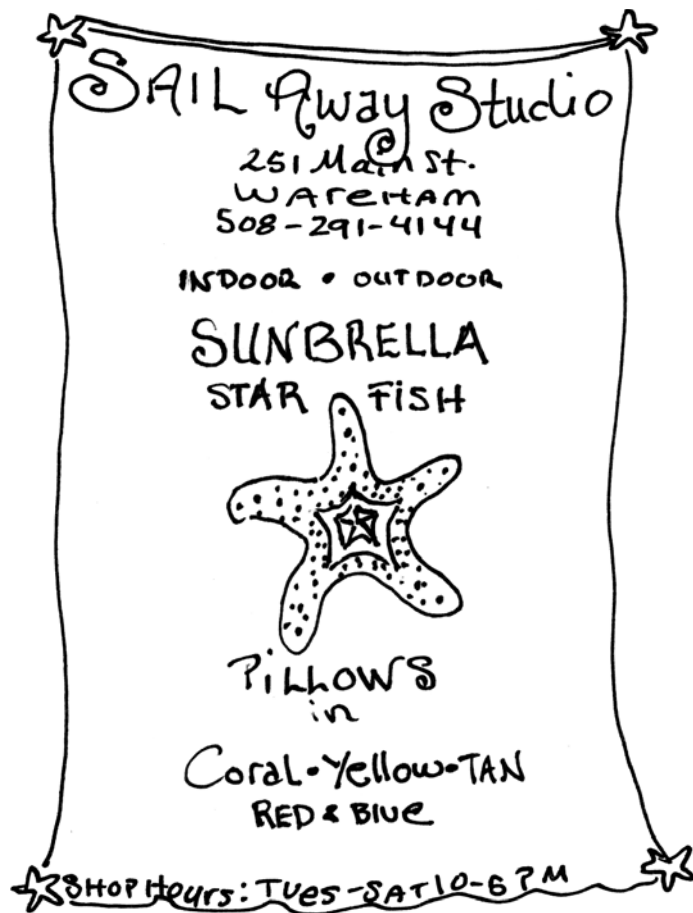 SAIL Away Studio
251 Main St.
WAREHAM
508-291-4144
INDOOR • OUTDOOR
SUNBRELLA
STAR FISH
PILLOWS
in
Coral•Yellow•TAN
RED & BLUE
SHOP Hours: TUES-SAT 10-6 PM